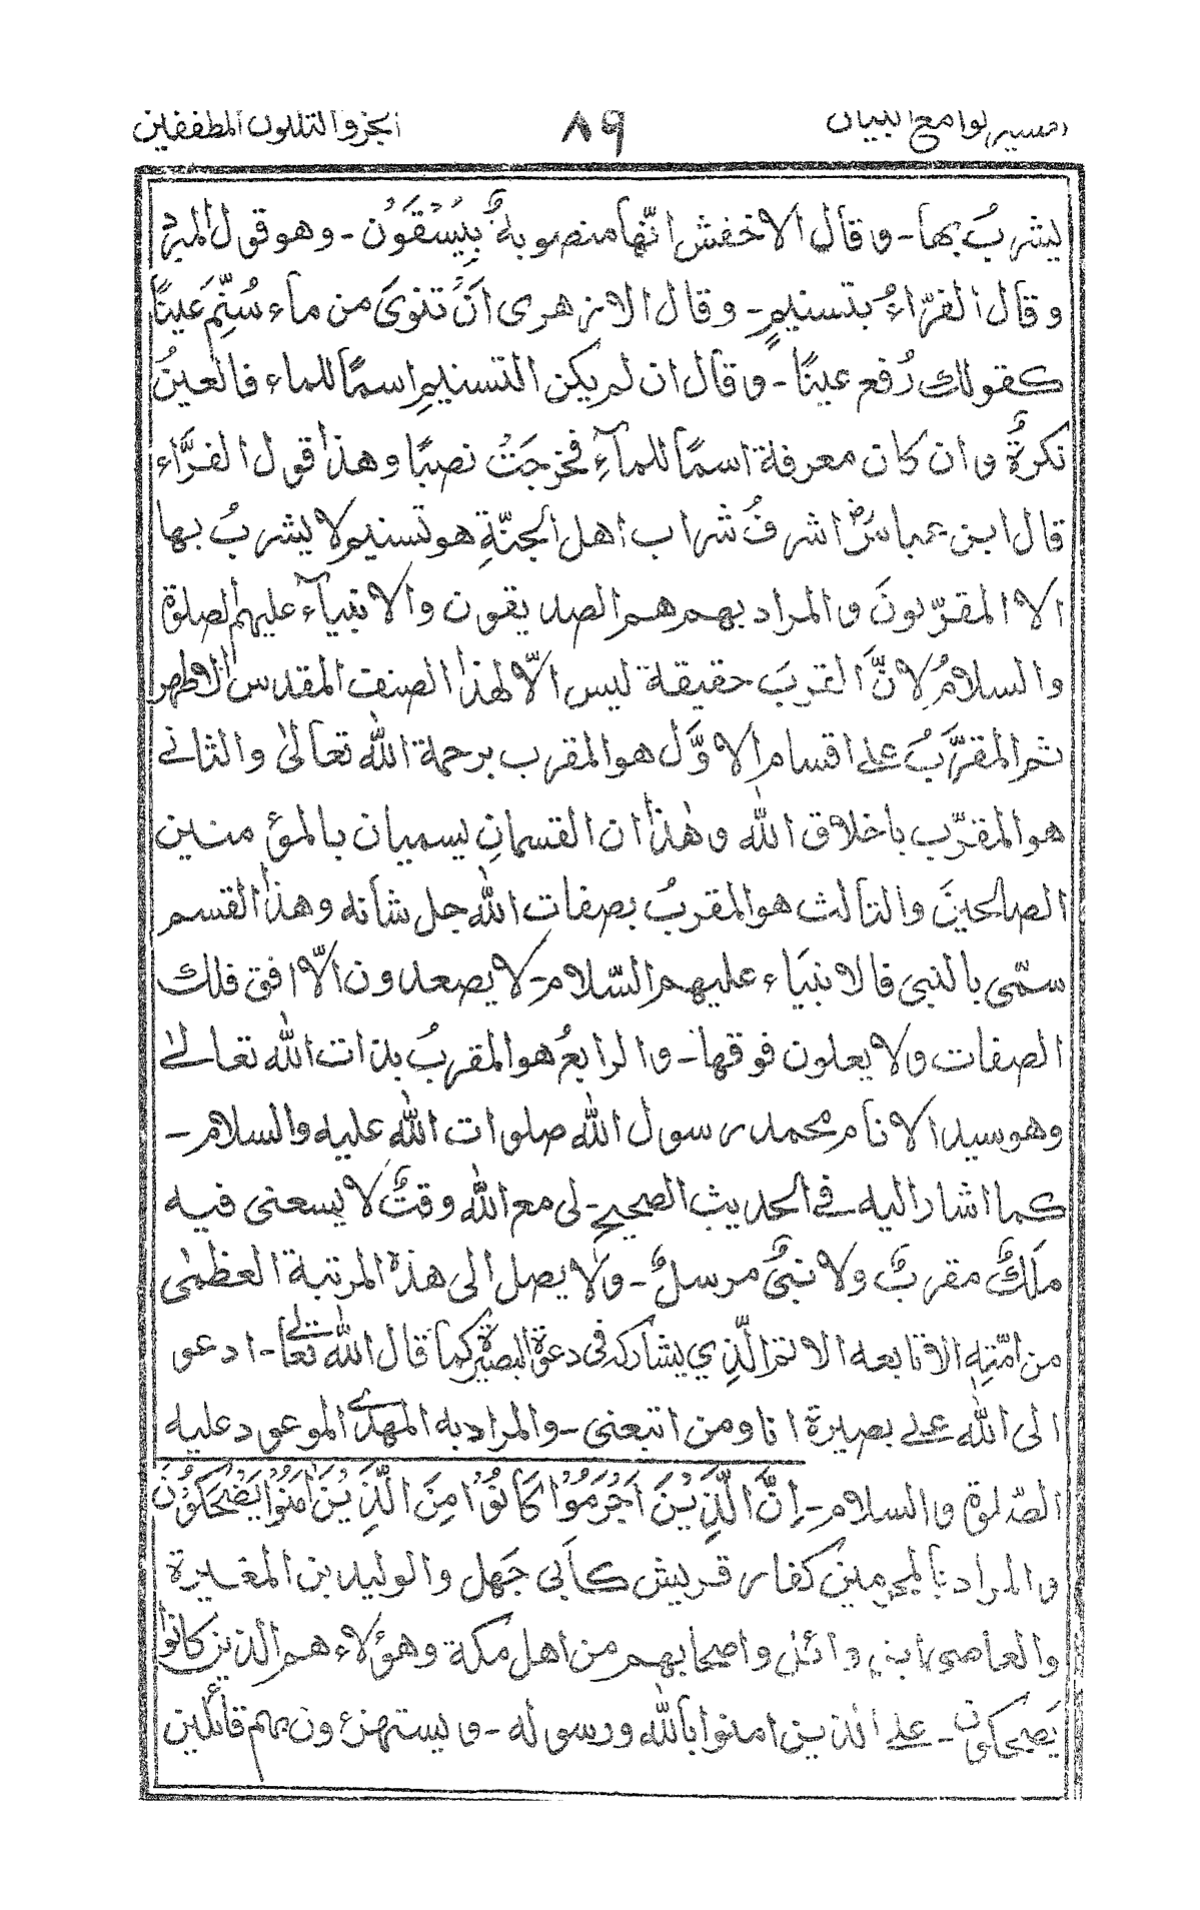 تفسير لوامع البيان ٨٩ الجزؤ الثلثون المطففين
يشربُ بها۔ وقال الاخفش انّها منصوبةٌ بِيُسْقَوْن۔ وهو قول المبرد
وقال الفرّاءُ بتسنيمٍ۔ وقال الازهرى اَنْ تنوىَ من ماء سُنِّمَ عينًا
كقولك رُفع عينًا۔ وقال ان لم يكن التسنيمِ اسمًا للماء فالعينُ
نكرةٌ وان كان معرفة اسمًا للمآءِ فخرجَتْ نصبًا وهذا قول الفرَّاء
قال ابن عباسؓ اشرفُ شراب اهل الجنّةِ هو تسنيم لا يشربُ بها
الا المقرّبونَ والمراد بهم هم الصديقون والانبيآء عليهم الصلوة
والسلامُ لانَّ القربَ حقيقة ليس الّا لهذا الصنف المقدس الاطهر
ثم المقرَّبُ على اقسام الاوَّل هو المقرب برحمة الله تعالىٰ والثانى
هو المقرّب باخلاق الله وهٰذان القسمانِ يسميان بالمؤمنين
الصالحينَ والثالث هو المقربُ بصفات الله جل شأنه وهذا القسم
سمّى بالنبى فالانبيَاء عليهم السّلام۔ لا يصعدون الّا افق فلك
الصفات ولا يعلون فوقها۔ والرابعُ هو المقربُ بذات الله تعالىٰ
وهو سيد الانام محمد رسول الله صلوات الله عليه والسلام۔
كما اشار اليه فى الحديث الصحيح۔ لى مع الله وقتٌ لا يسعنى فيه
ملَكٌ مقربٌ ولا نبىٌّ مرسلٌ۔ ولا يصل الى هذه المرتبة العظمٰى
من امّتِه الا تابعه الاتم الّذي يشاركه فى دعوة البصيرة كما قال الله تعالىٰ۔ ادعو
الى الله على بصيرة انا ومن اتبعنى۔ والمراد به المهدى الموعود عليه
الصّلوة والسلام۔ اِنَّ الَّذِيْنَ اَجْرَمُوْا كَانُوْا مِنَ الَّذِيْنَ اٰمَنُوْا يَضْحَكُوْنَ
والمراد بالمجرمين كفار قريش كأبى جَهل والوليد بن المغيرة
والعاصى ابن وائل واصحابهم من اهل مكة وهؤلاء هم الذين كانوا
يَضحكون۔ على الذين امنوا بالله ورسوله۔ ويستهزءون بهم قائلين